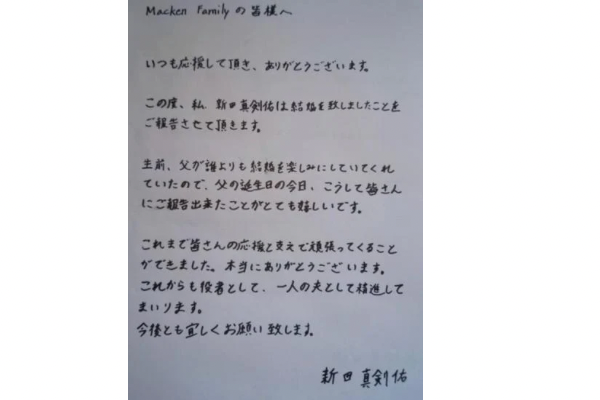 Macken Family の皆様へ
いつも応援して頂き、ありがとうございます。
この度、私 新田真剣佑は結婚を致しましたことを
ご報告させて頂きます。
生前、父が誰よりも結婚を楽しみにしていてくれ
ていたので、父の誕生日の今日、こうして皆さん
にご報告出来たことがとても嬉しいです。
これまで皆さんの応援と支えで頑張ってくること
ができました。本当にありがとうございます。
これからも役者として、一人の夫として精進して
まいります。
今後とも宜しくお願い致します。
新田 真剣佑